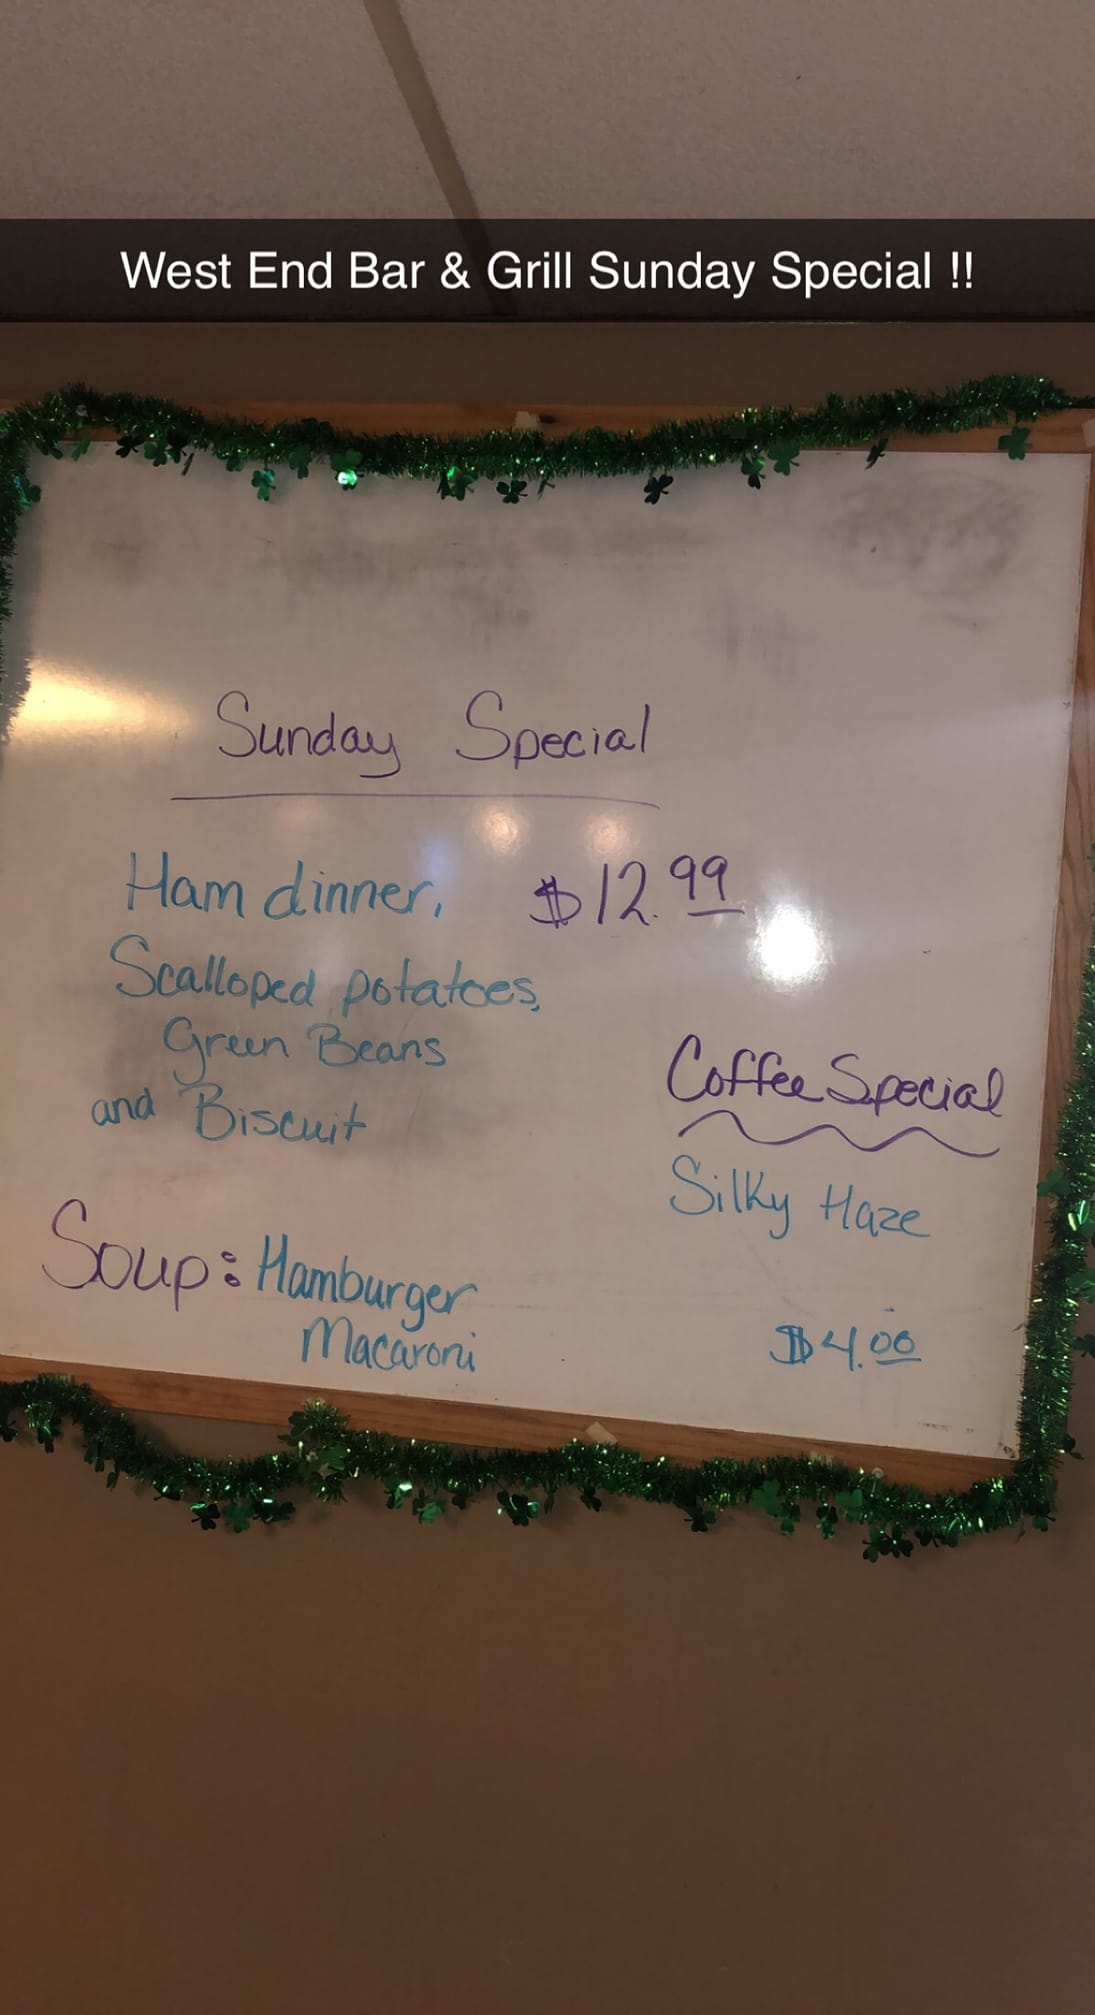 West End Bar & Grill Sunday Special !!
Sunday Special
Ham dinner, $12.99
Scalloped potatoes,
Green Beans
and Biscuit
Coffee Special
Silky Haze
$4.00
Soup: Hamburger
Macaroni